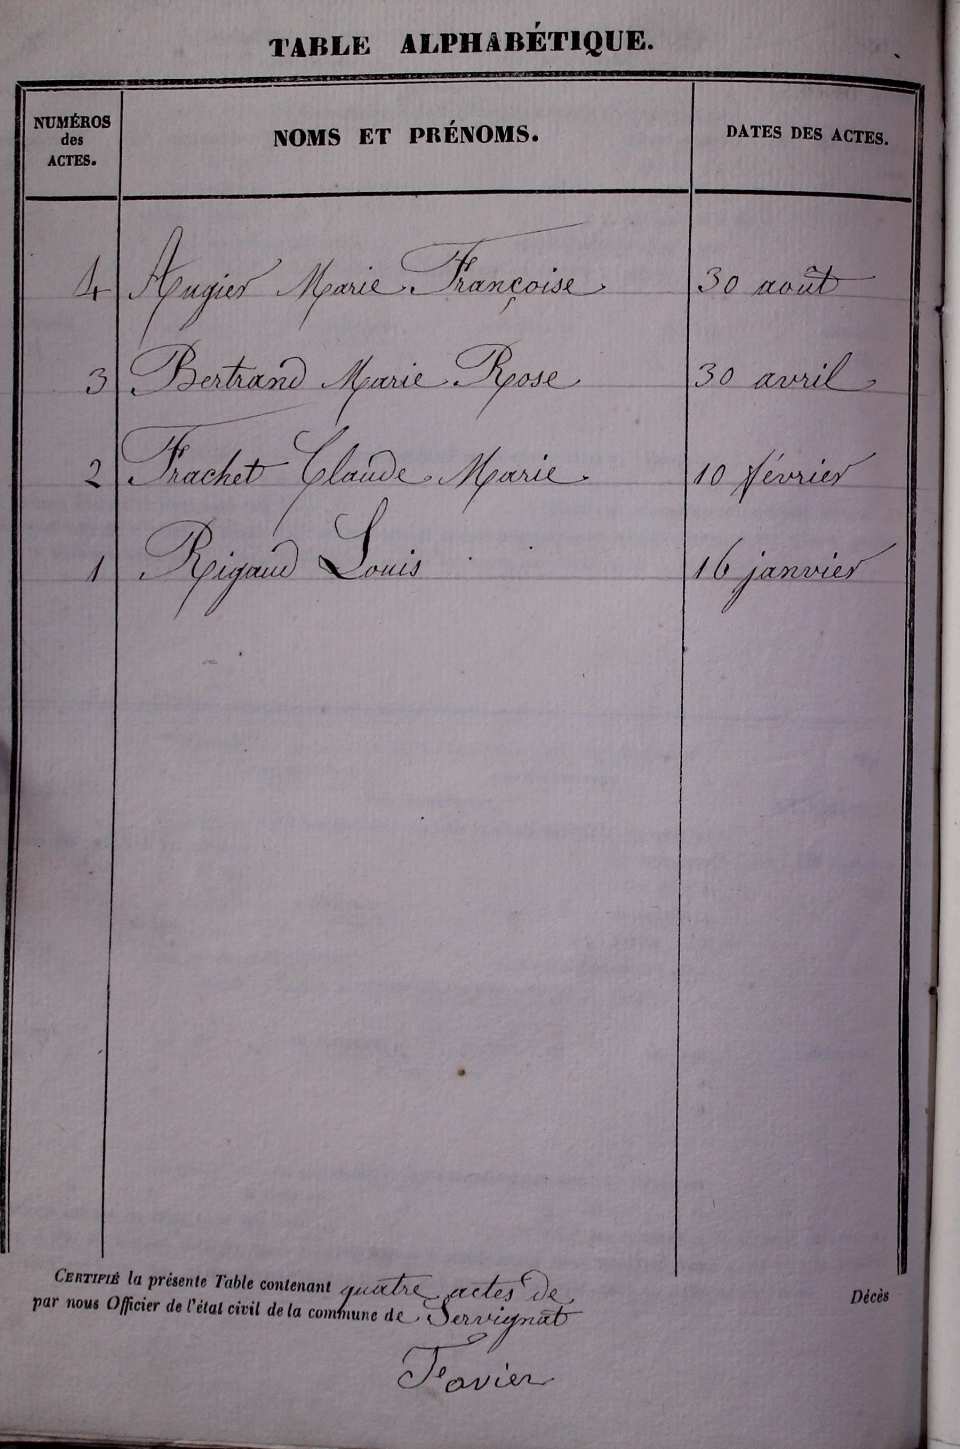 TABLE ALPHABÉTIQUE.
NUMÉROS des ACTES. NOMS ET PRÉNOMS. DATES DES ACTES.
4 Augier Marie Françoise 30 août
3 Bertrand Marie Rose 30 avril
2 Frachet Claude Marie 10 février
1 Rigaud Louis 16 janvier
CERTIFIÉ la présente Table contenant quatre actes de Décès
par nous Officier de l'état civil de la commune de Servignat
Favier